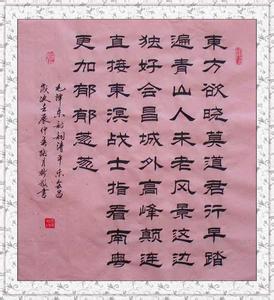 東方欲晓莫道君行早踏
遍青山人未老风景这边
独好会昌城外高峰颠连
直接東溟战士指看南粤
更加郁郁葱葱
毛泽东词清平乐会昌
岁次壬辰仲冬书